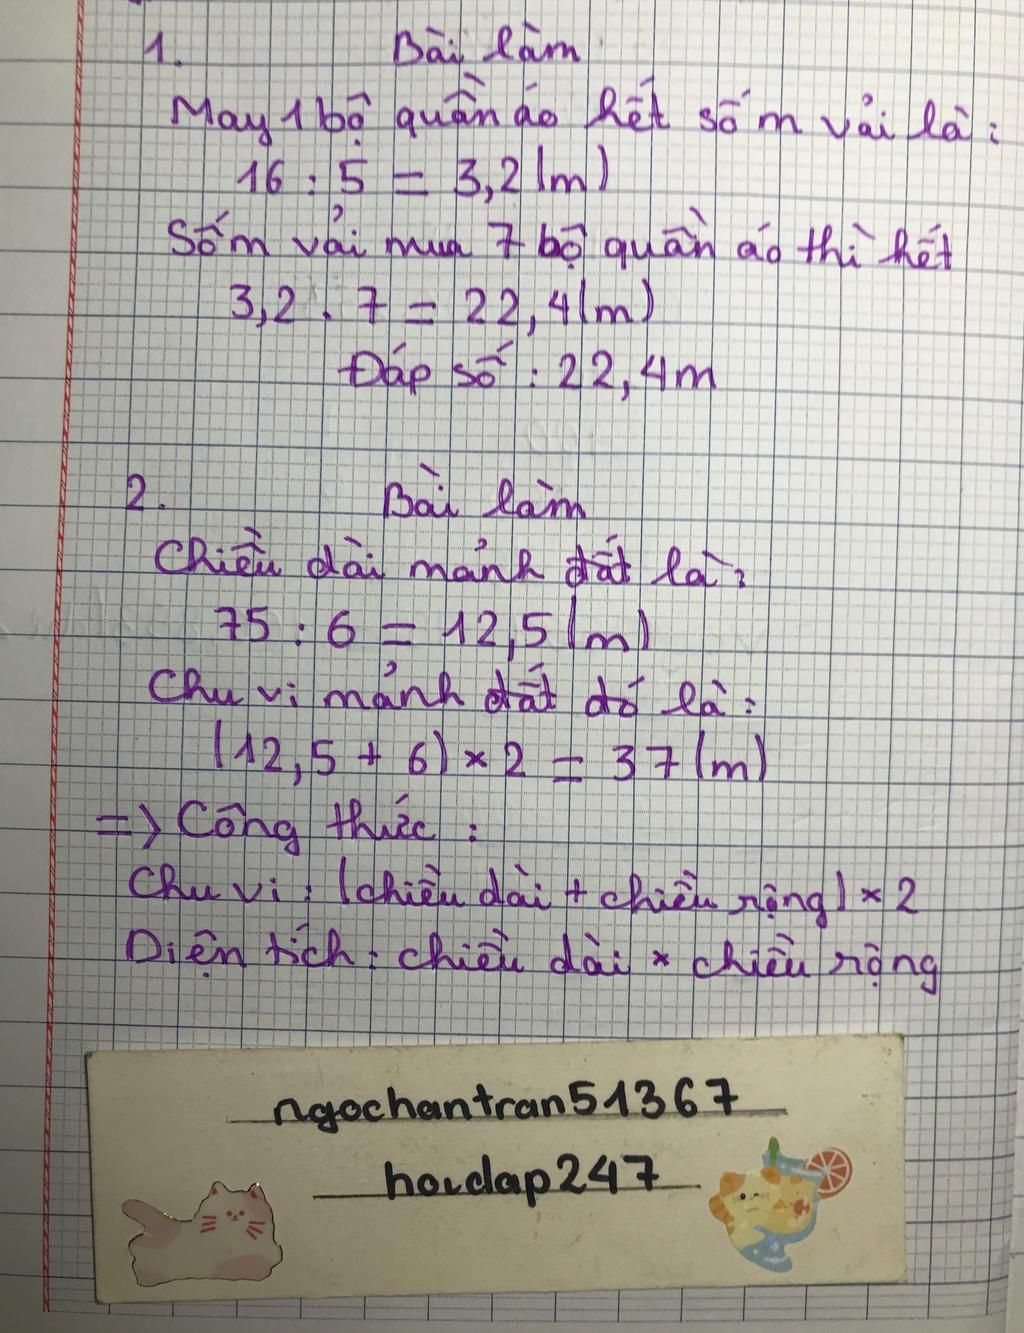 1. Bài làm
May 1 bộ quần áo hết số m vải là:
16 : 5 = 3,2 (m)
Số m vải mua 7 bộ quần áo thì hết
3,2 . 7 = 22,4 (m)
Đáp số : 22,4 m
2. Bài làm
Chiều dài mảnh đất là:
75 : 6 = 12,5 (m)
Chu vi mảnh đất đó là:
(12,5 + 6) × 2 = 37 (m)
=> Công thức :
Chu vi : (chiều dài + chiều rộng) × 2
Diện tích : chiều dài × chiều rộng
ngochantran51367
hoidap247